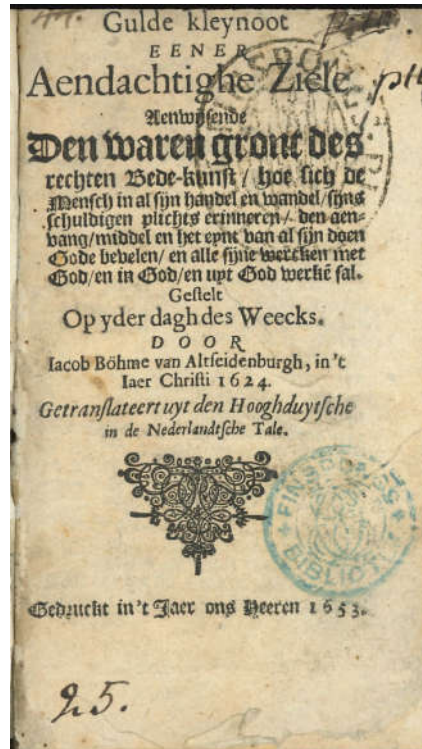 Gulde kleynoot
EENER
Aendachtighe Ziele
Aenwijsende
Den waren gront des
rechten Bede-kunst / hoe sich de
Mensch in al sijn handel en wandel / sijns
schuldigen plichts erinneren / den aen-
vang / middel en het eynt van al sijn doen
Gode bevelen / en alle sijne wercken met
God / en in God / en uyt God werkē sal.
Gestelt
Op yder dagh des Weecks.
DOOR
Iacob Böhme van Altseidenburgh, in't
Iaer Christi 1624.
Getranslateert uyt den Hooghduytsche
in de Nederlandtsche Tale.
BIBLIOTH
Gedruckt in't Jaer ons Heeren 1653.
25.